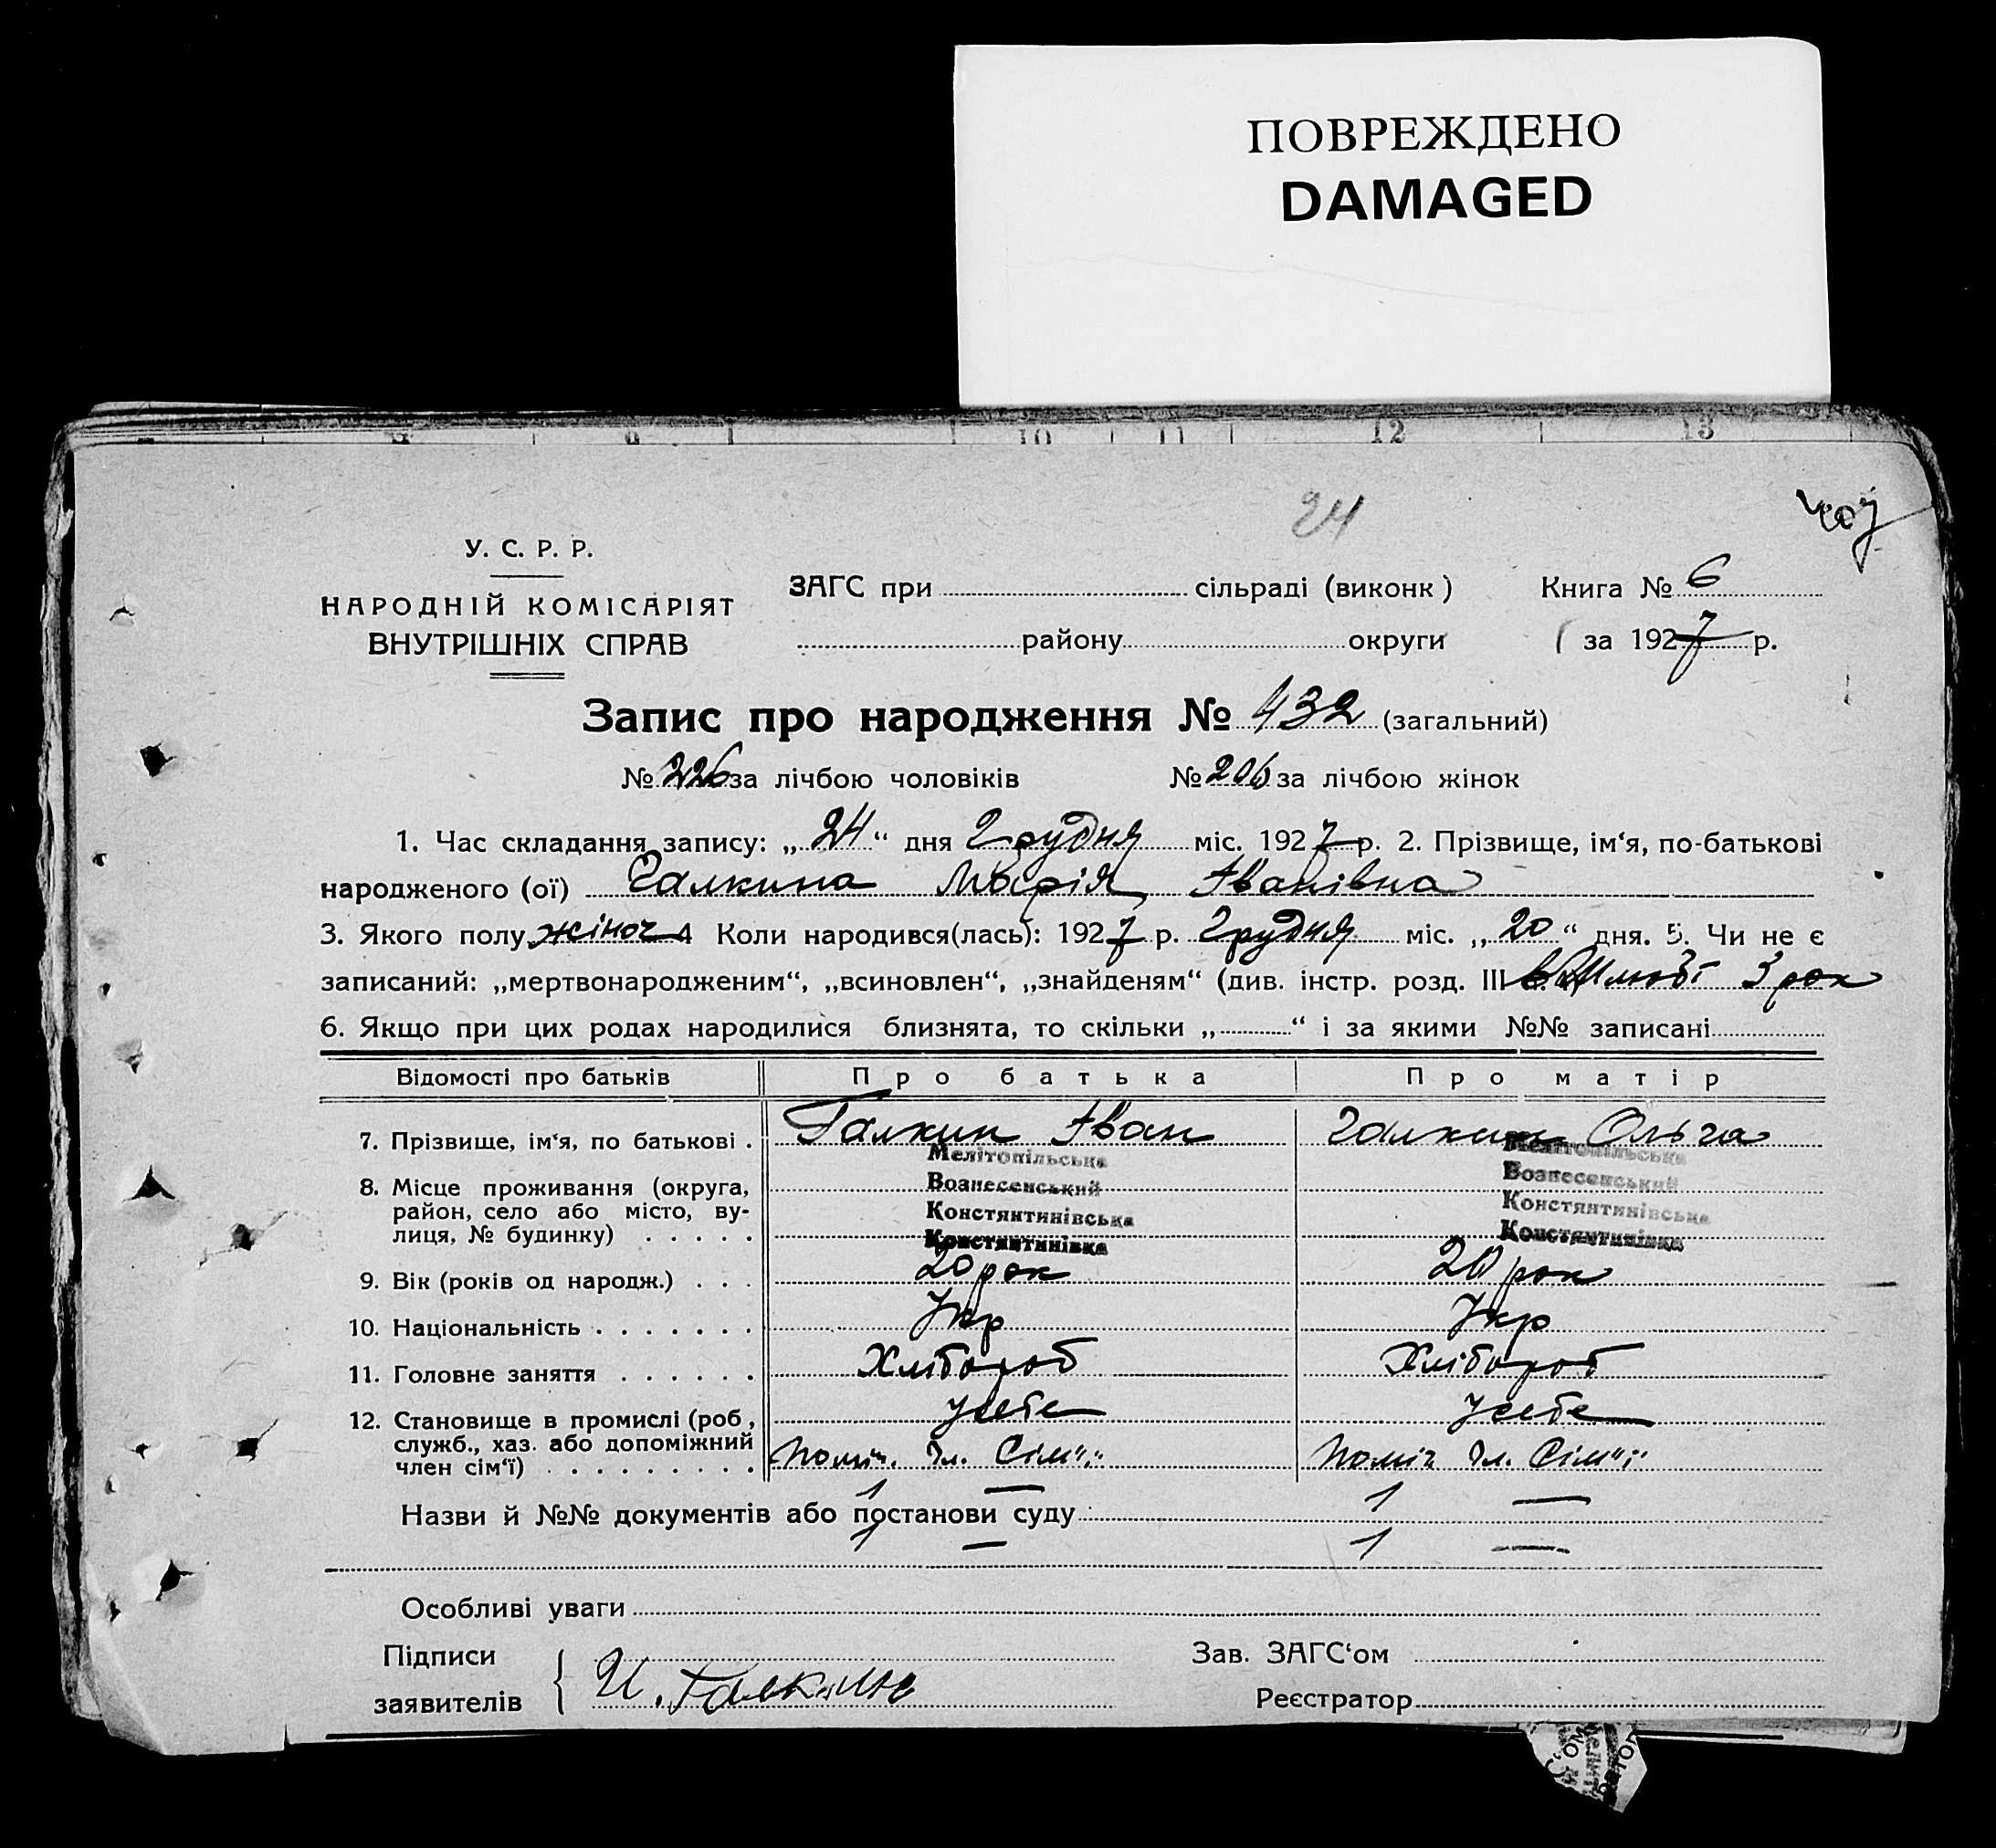 ПОВРЕЖДЕНО
DAMAGED
8 9 10 11 12 13
24
У. С. Р. Р.
НАРОДНІЙ КОМІСАРІЯТ
ВНУТРІШНІХ СПРАВ
ЗАГС при сільраді (виконк)
району округи
Книга № 6
за 1927 р.
Запис про народження № 432 (загальний)
№ 226 за лічбою чоловіків № 206 за лічбою жінок
1. Час складання запису: „24“ дня Грудня міс. 1927 р. 2. Прізвище, ім‘я, по-батькові
народженого (ої) Галкина Марія Іванівна
3. Якого полу жіноч 4 Коли народився(лась): 1927 р. Грудня міс. „20“ дня. 5. Чи не є
записаний: „мертвонародженим“, „всиновлен“, „знайденям“ (див. інстр. розд. III в шлюбі 3 рок
6. Якщо при цих родах народилися близнята, то скільки „ “ і за якими №№ записані
Відомості про батьків Про батька Про матір
7. Прізвище, ім‘я, по батькові . Галкин Іван Галкин Ольга
8. Місце проживання (округа, район, село або місто, вулиця, № будинку) . . . . .
Мелітопільська Мелітопільська
Вознесенський Вознесенський
Констянтинівська Констянтинівська
Констянтинівка Констянтинівка
9. Вік (років од народж.) . . . 20 рок 20 рок
10. Національність . . . . . . . Укр Укр
11. Головне заняття . . . . . . Хлібороб Хлібороб
12. Становище в промислі (роб, служб., хаз. або допоміжний член сім‘ї) . . . . . . . . .
У себе У себе
Поміч. Чл. Сім"ї Поміч Чл. Сім"ї
1 — 1 —
Назви й №№ документів або постанови суду
1 — 1 —
Особливі уваги
Підписи
заявителів
И. Галкин
Зав. ЗАГС‘ом
Реєстратор